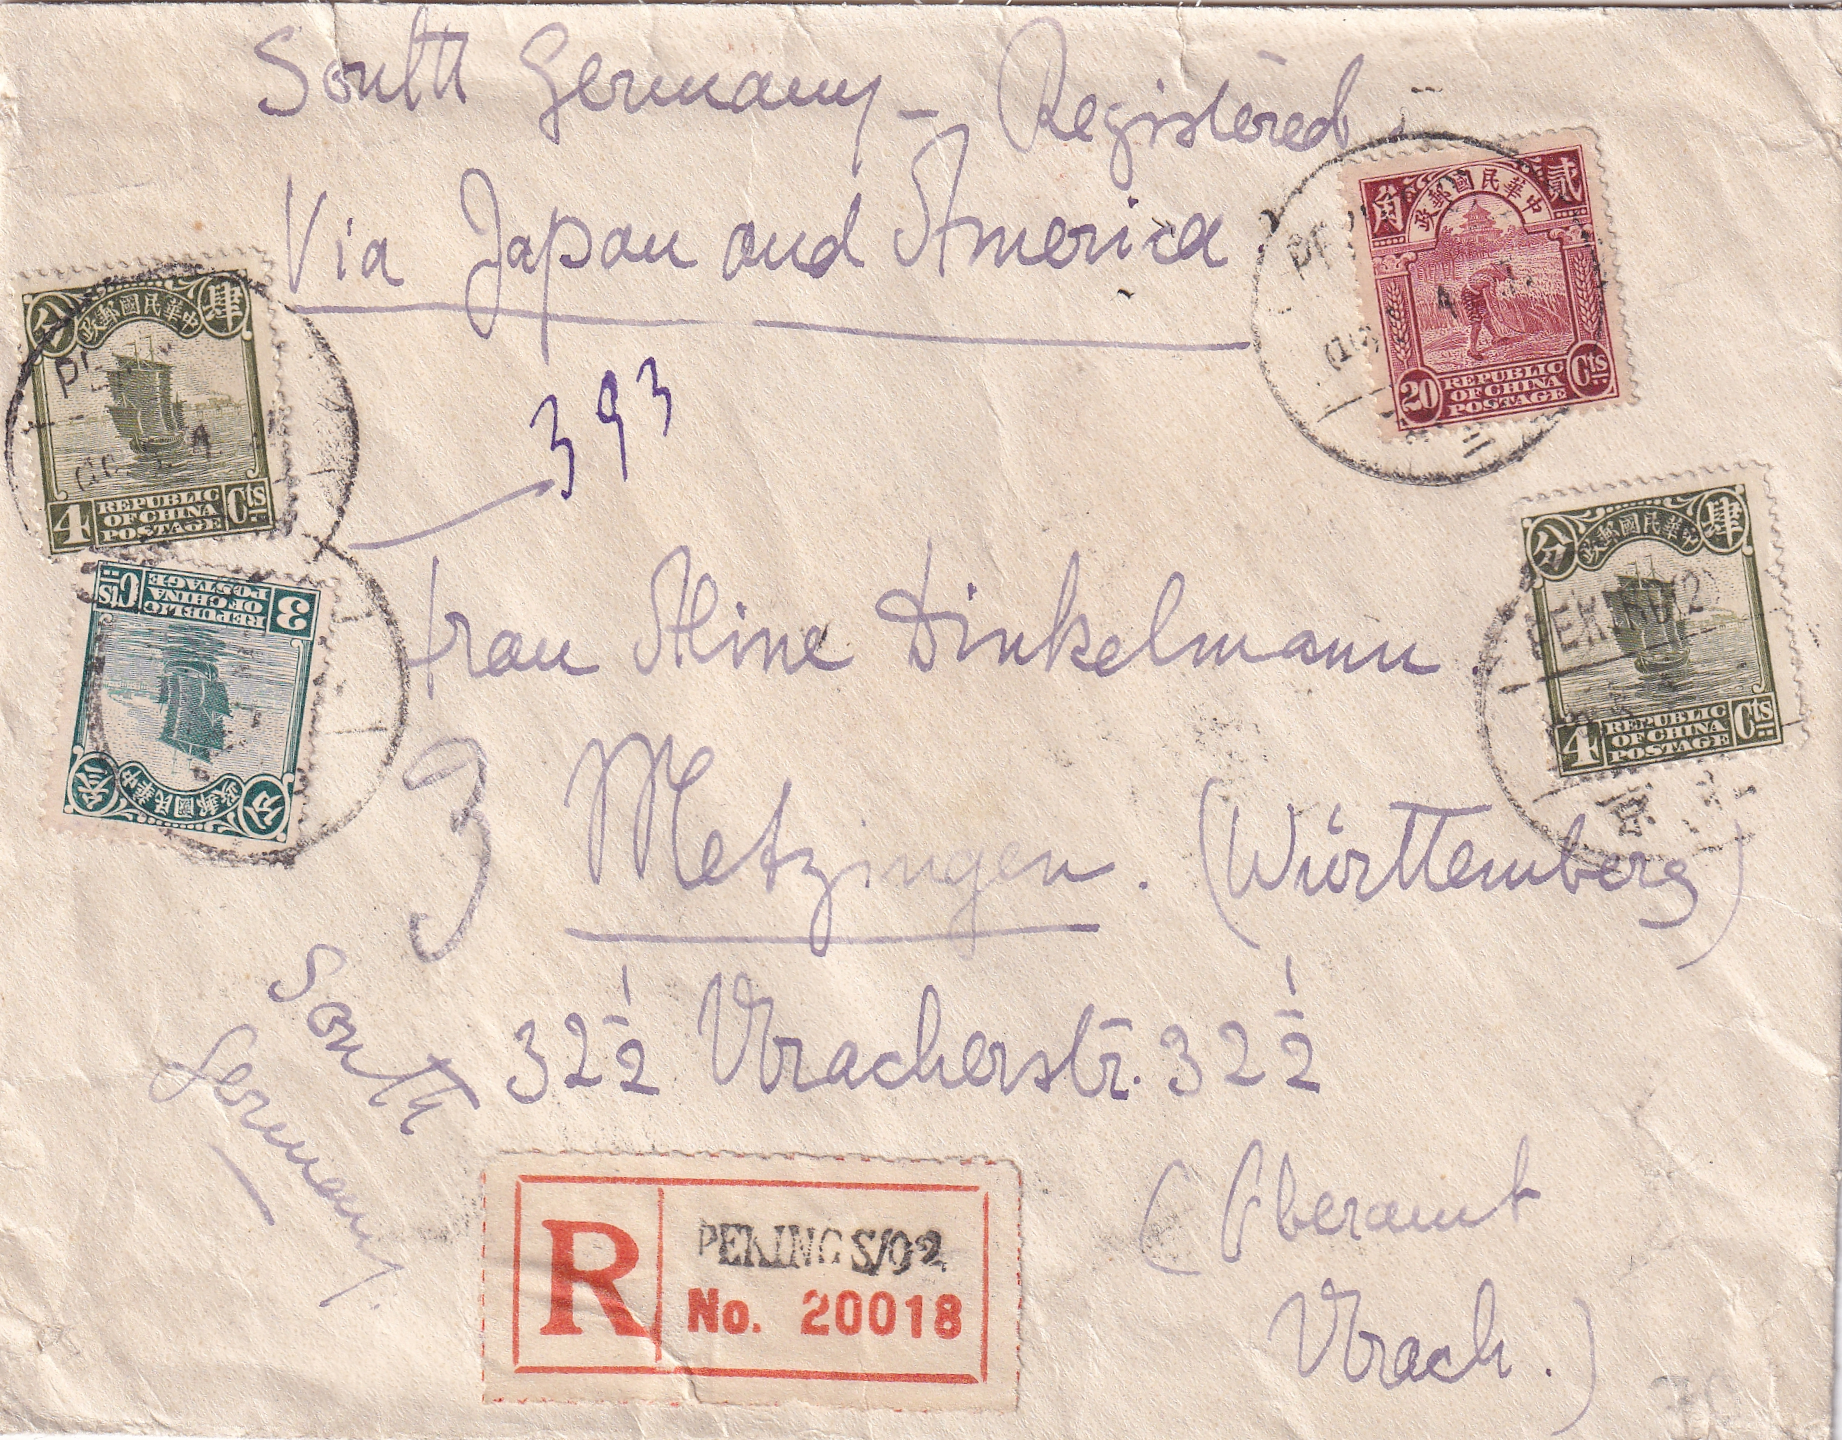 South Germany – Registered
Via Japan and America
393
Frau Aline Dinkelmann
Metzingen. (Württemberg)
32 1/2 Uracherstr. 32 1/2
(Oberamt
Urach.)
South
Germany.
3
R
PEKING S/O 2
No. 20018
政郵國民華中
分 肆
4 REPUBLIC OF CHINA POSTAGE Cts
政郵國民華中
分 叁
3 REPUBLIC OF CHINA POSTAGE Cts
政郵國民華中
角 貳
20 REPUBLIC OF CHINA POSTAGE Cts
政郵國民華中
分 肆
4 REPUBLIC OF CHINA POSTAGE Cts
PEKING (2)